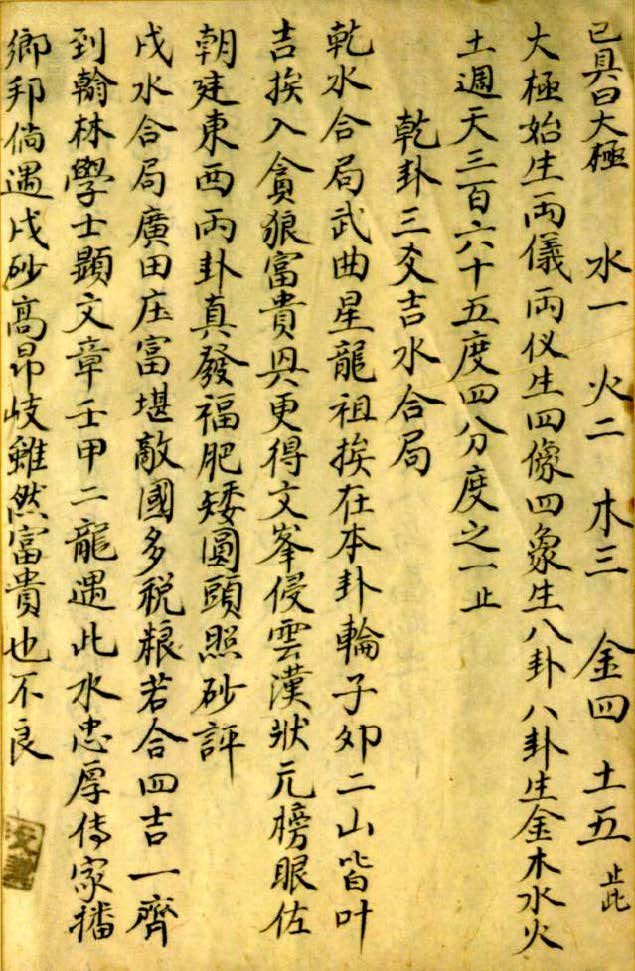 已具曰大極　水一　火二　木三　金四　土五　止此
大極始生両儀両仪生四像四象生八卦八卦生金木水火
土週天三百六十五度四分度之一止
乾卦三爻吉水合局
乾水合局武曲星龍祖挨在本卦輪子夘二山皆叶
吉挨入貪狼富貴與更得文峯侵雲漢狀元榜眼佐
朝廷東西両卦真發福肥矮圓頭照砂評
戌水合局廣田庄富堪敵國多税粮若合四吉一齊
到翰林學士顕文章壬甲二龍遇此水忠厚傳家播
鄉邦倘遇戌砂高昂岐雖然富貴也不良